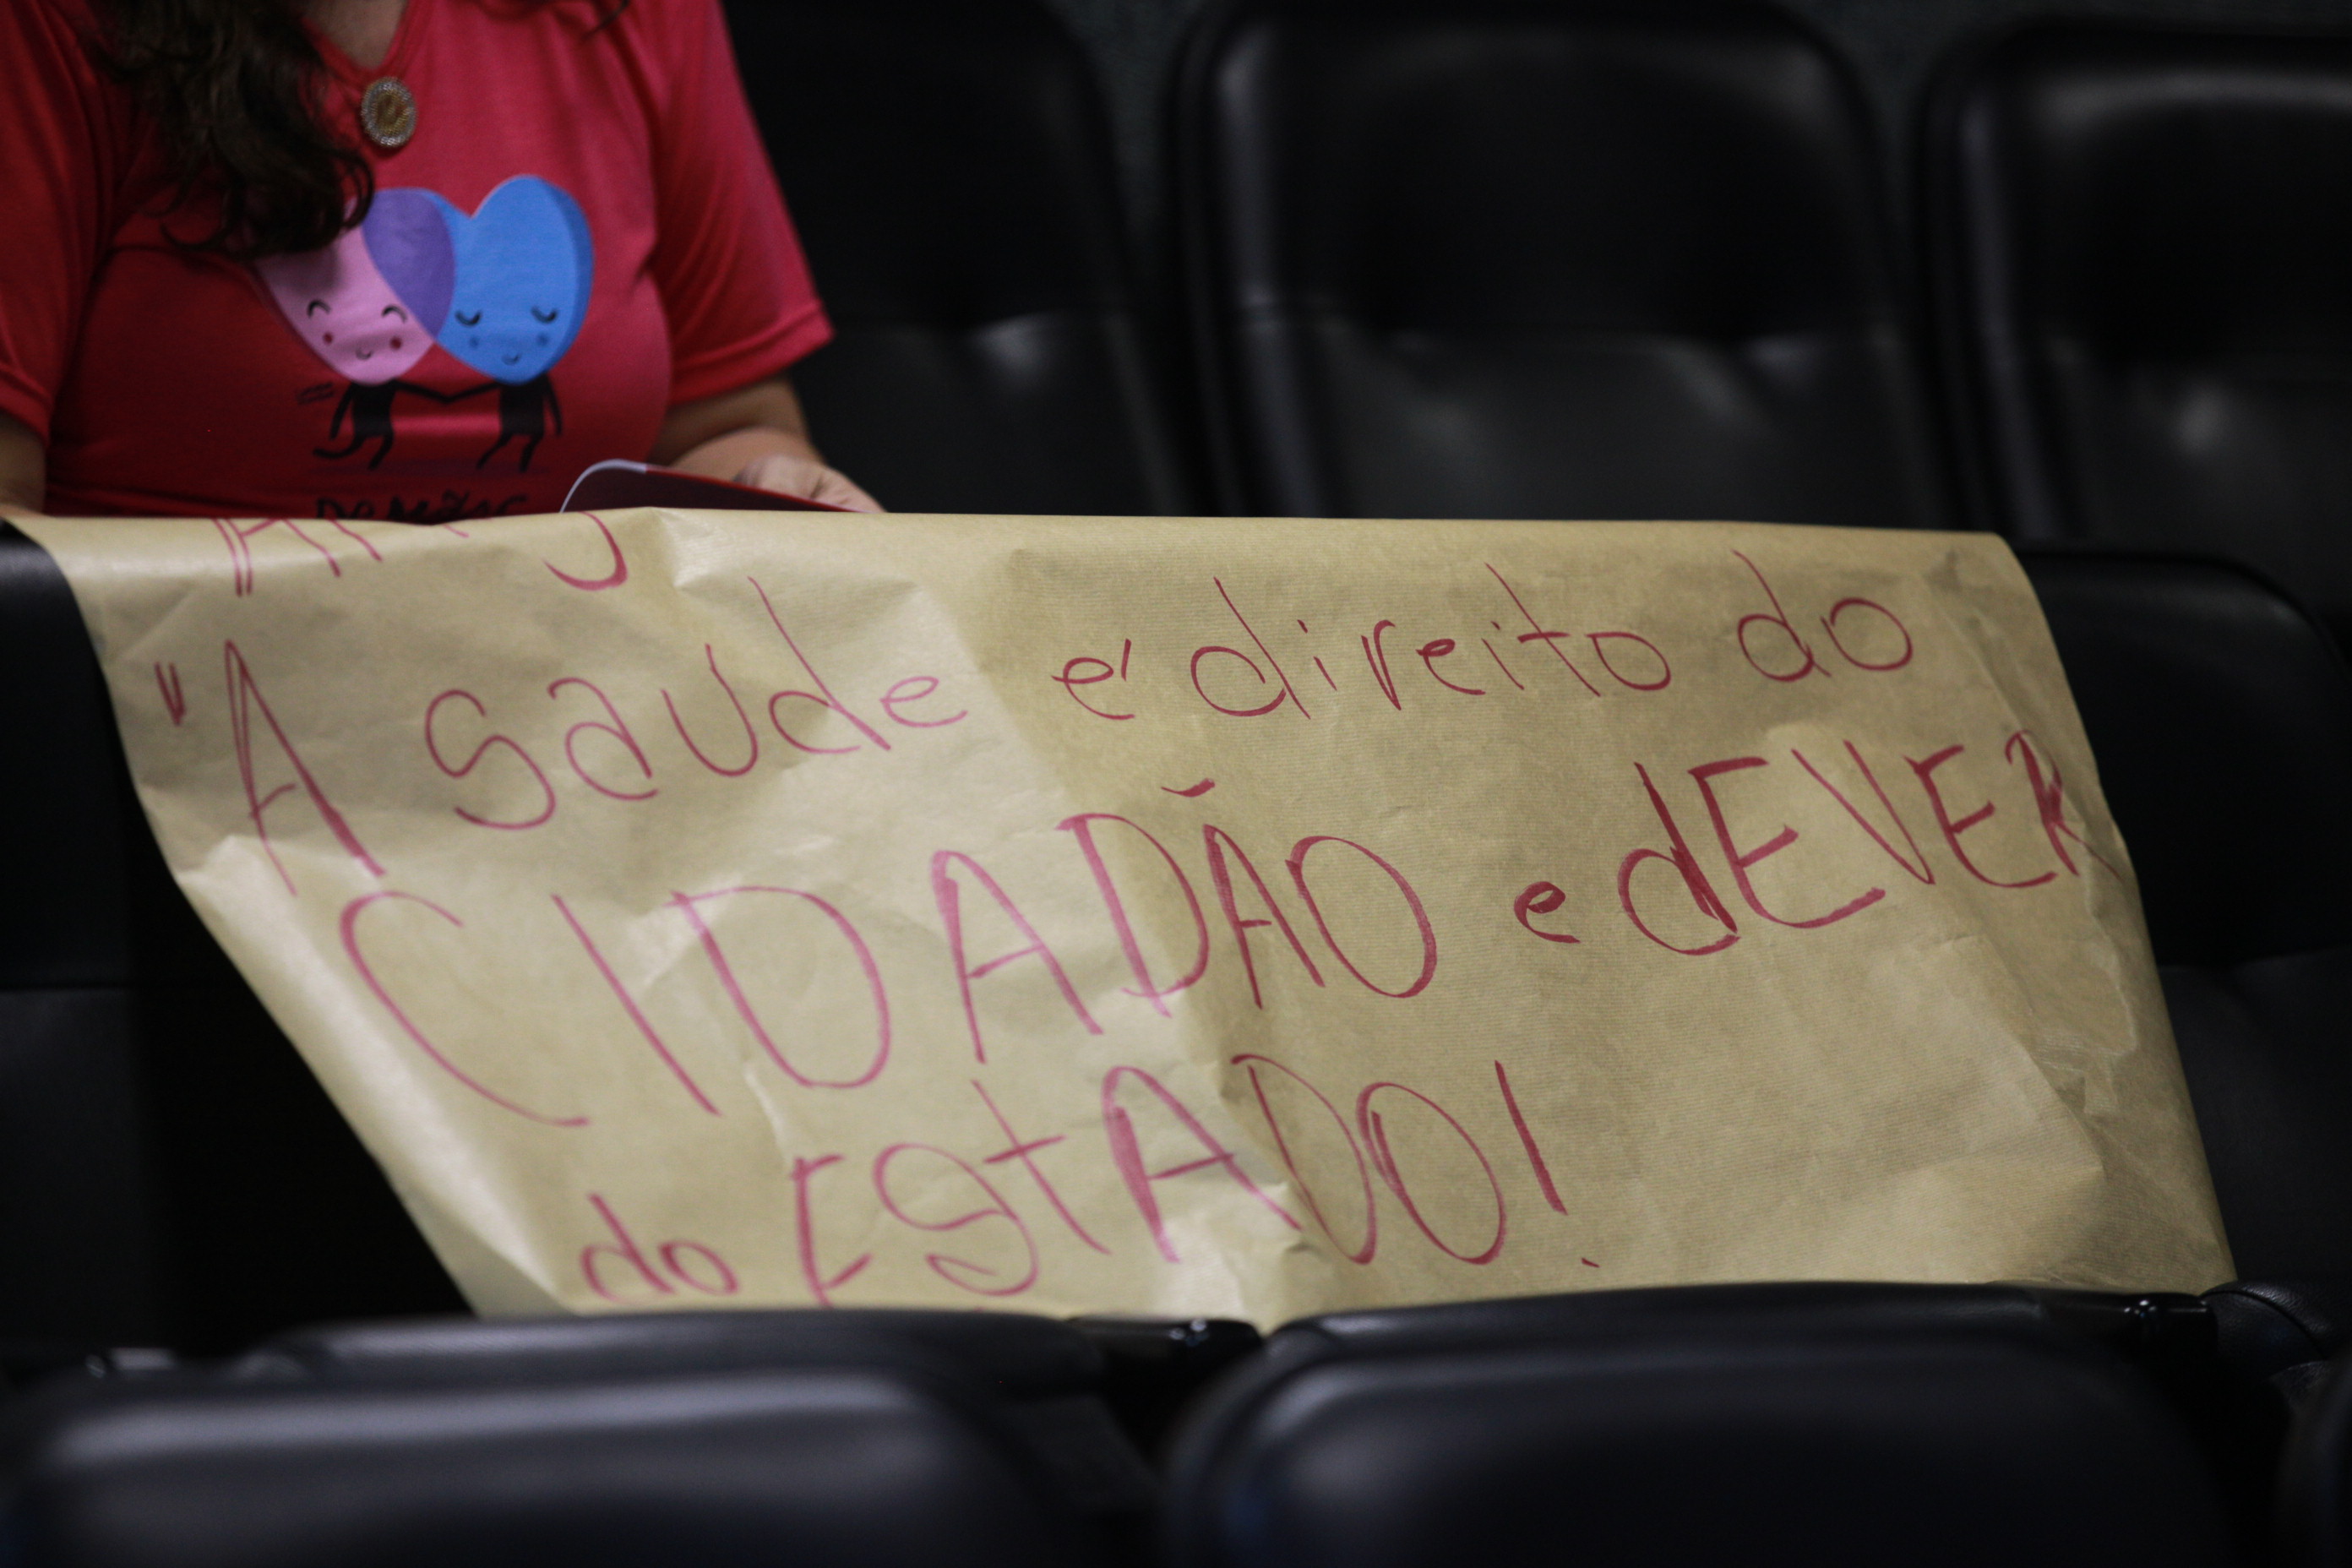 "A saude é direito do
CIDADÃO e dEVER
do EstADO!